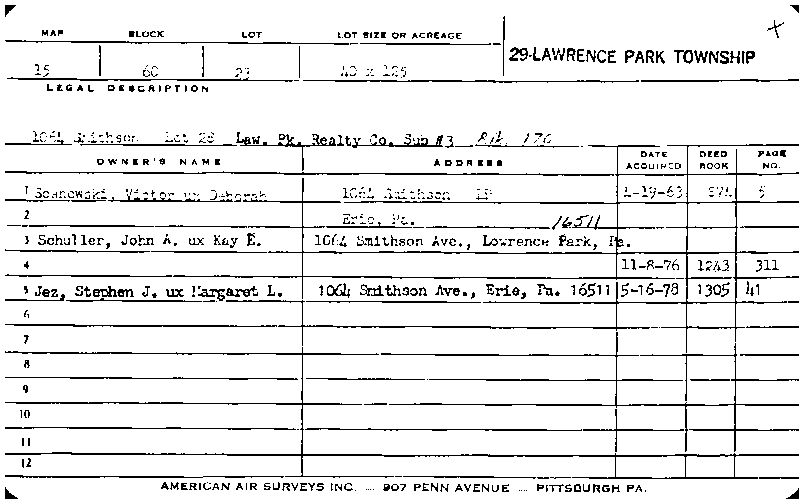 MAP BLOCK LOT LOT SIZE OR ACREAGE
29-LAWRENCE PARK TOWNSHIP
15 60 23 40 x 125
LEGAL DESCRIPTION
1064 Smithson Lot 28 Law. Pk. Realty Co. Sub #3 170
OWNER'S NAME ADDRESS DATE ACQUIRED DEED BOOK PAGE NO.
1 Victor ux Deborah 1064 Smithson 4-19-63 5
2 Erie, Pa. 16511
3 Schuller, John A. ux Kay E. 1064 Smithson Ave., Lowrence Park, Pa.
4 11-8-76 1243 311
5 Jez, Stephen J. ux Margaret L. 1064 Smithson Ave., Erie, Pa. 16511 5-16-78 1305 41
6
7
8
9
10
11
12
AMERICAN AIR SURVEYS INC. .... 907 PENN AVENUE .... PITTSBURGH PA.